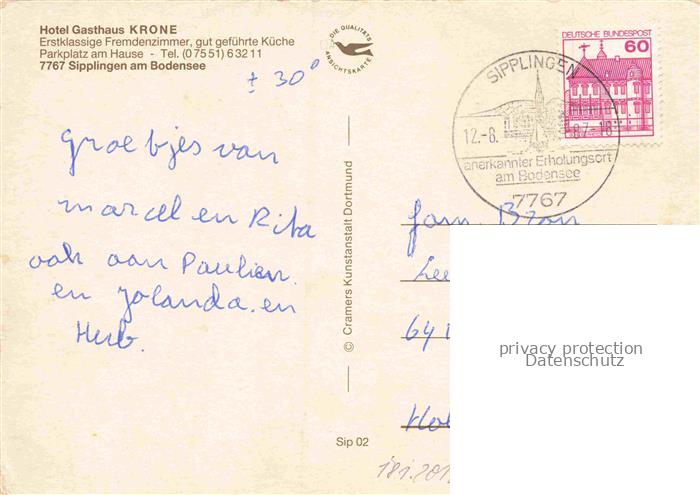 Hotel Gasthaus KRONE
Erstklassige Fremdenzimmer, gut geführte Küche
Parkplatz am Hause - Tel. (07551) 63211
7767 Sipplingen am Bodensee
± 30°
DIE QUALITÄTS
ANSICHTSKARTE
DEUTSCHE BUNDESPOST
60
SIPPLINGEN
12.-8.
87-18
anerkannter Erholungsort
am Bodensee
7767
Groetjes van
marcel en Rita
ook aan Paulien.
en Jolanda. en
Herb.
© Cramers Kunstanstalt Dortmund
Sip 02
fam. Bron
64
privacy protection
Datenschutz